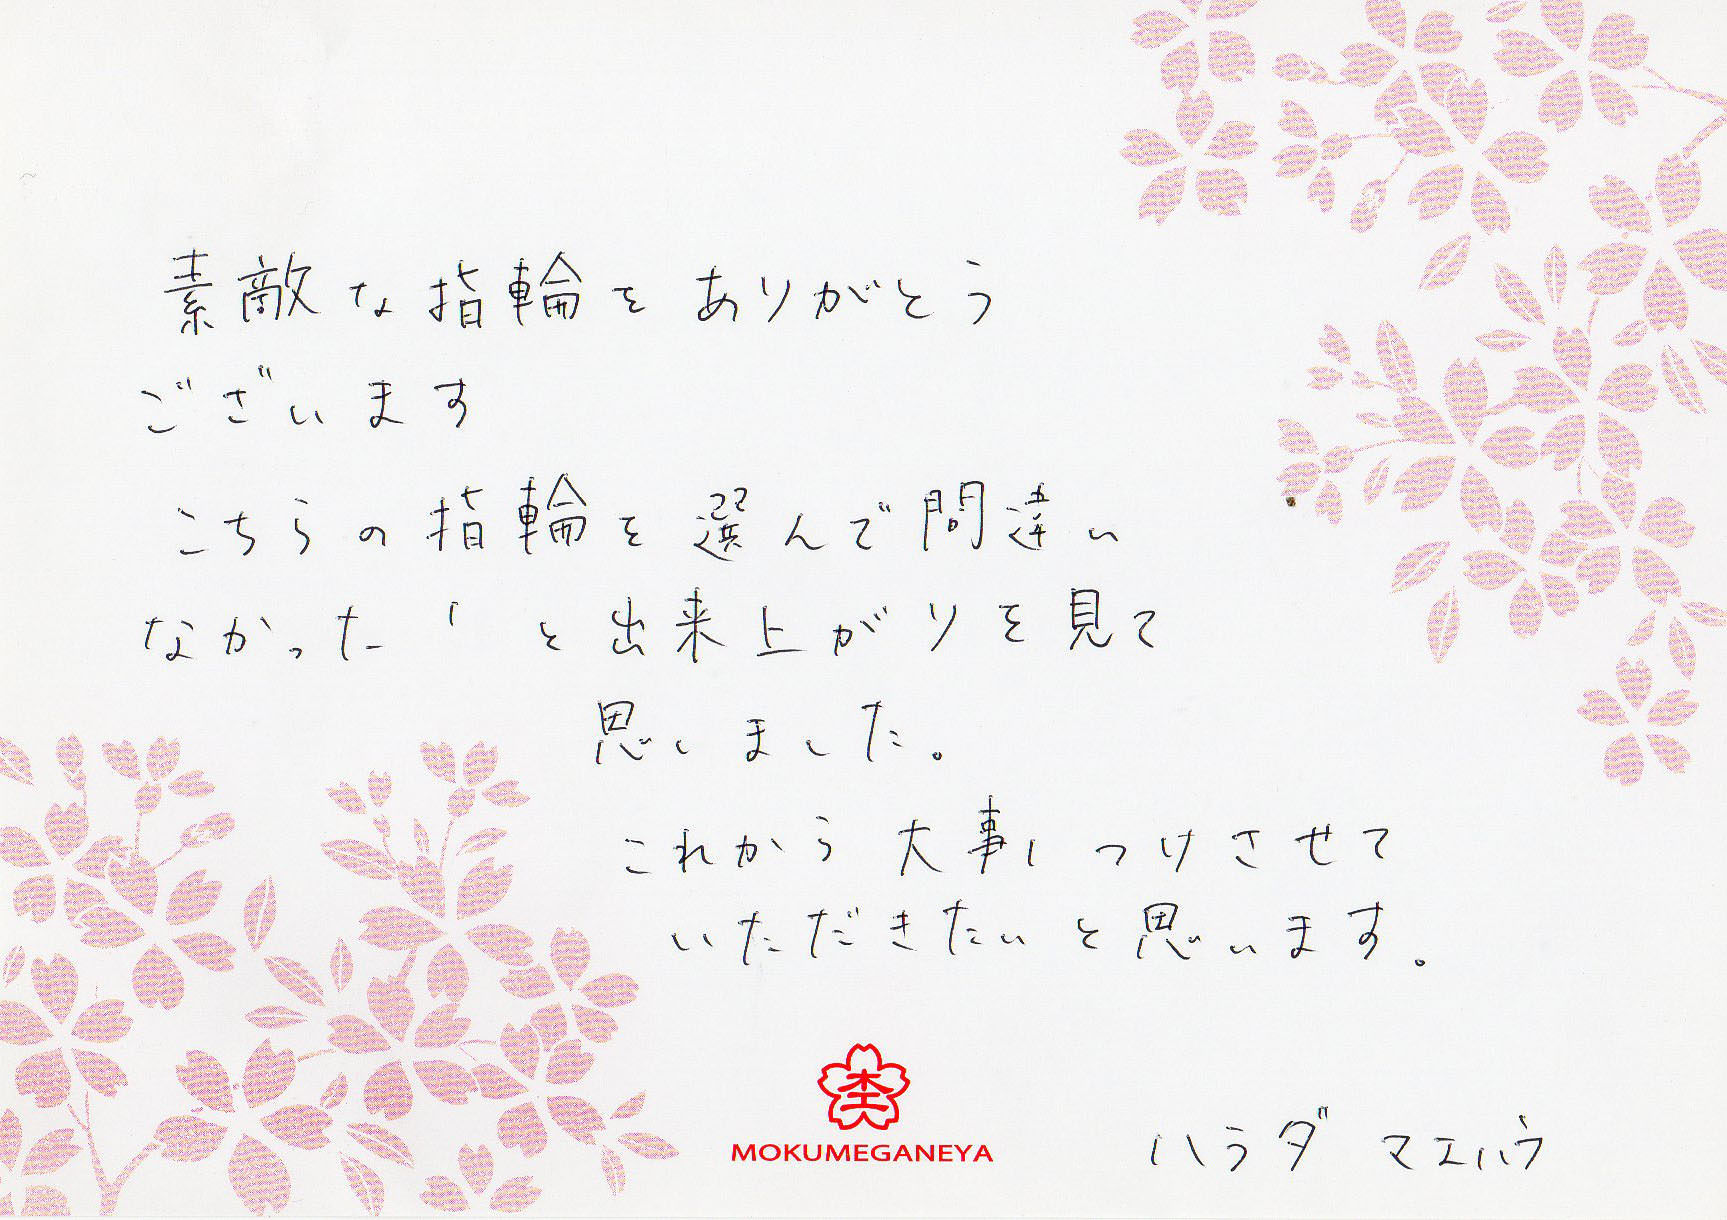 素敵な指輪をありがとう
ございます
こちらの指輪を選んで間違い
なかった！と出来上がりを見て
思いました。
これから大事につけさせて
いただきたいと思います。
MOKUMEGANEYA
ハラダ マエハラ